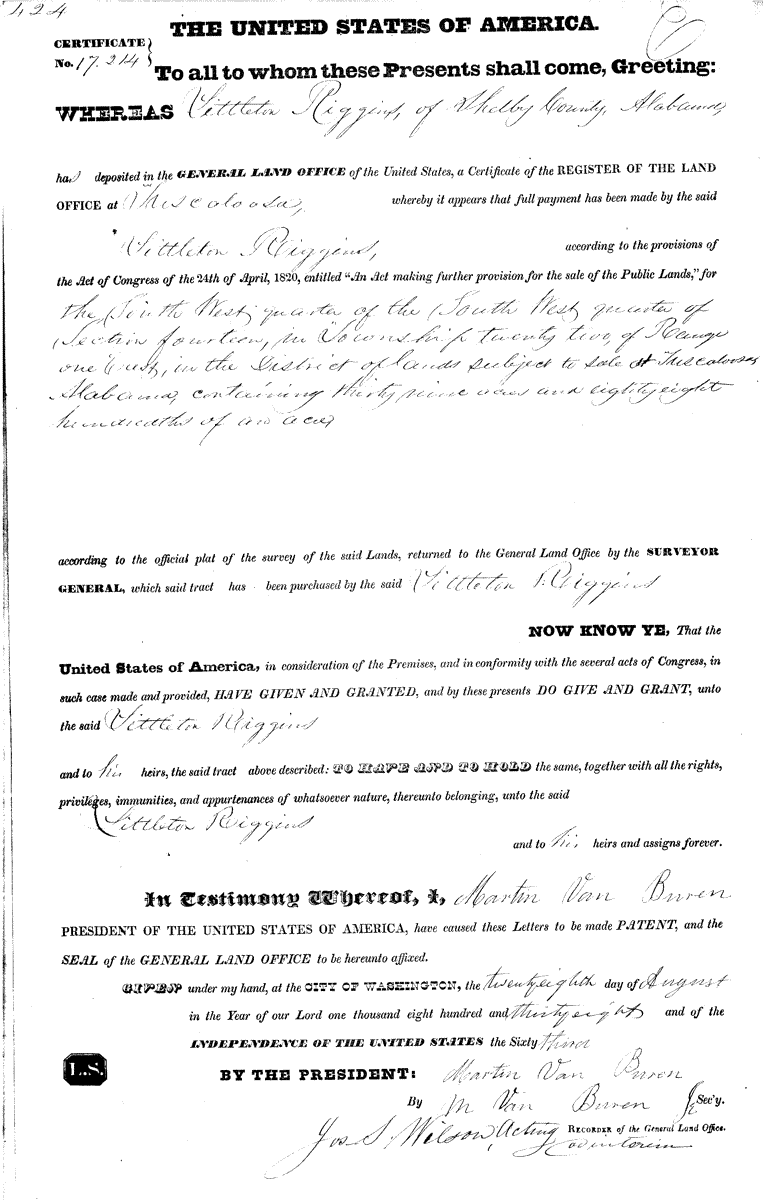 424
THE UNITED STATES OF AMERICA.
CERTIFICATE
No. 17.214
To all to whom these Presents shall come, Greeting:
WHEREAS Littleton Riggins, of Shelby County, Alabama,
has deposited in the GENERAL LAND OFFICE of the United States, a Certificate of the REGISTER OF THE LAND
OFFICE at Tuscaloosa, whereby it appears that full payment has been made by the said
Littleton Riggins, according to the provisions of
the Act of Congress of the 24th of April, 1820, entitled "An Act making further provision for the sale of the Public Lands," for
the South West quarter of the South West quarter of
Section fourteen, in Township twenty two, of Range
one East, in the District of lands subject to sale at Tuscaloosa,
Alabama, containing thirty nine acres and eighty eight
hundredths of an acre
according to the official plat of the survey of the said Lands, returned to the General Land Office by the SURVEYOR
GENERAL, which said tract has been purchased by the said Littleton Riggins
NOW KNOW YE, That the
United States of America, in consideration of the Premises, and in conformity with the several acts of Congress, in
such case made and provided, HAVE GIVEN AND GRANTED, and by these presents DO GIVE AND GRANT, unto
the said Littleton Riggins
and to his heirs, the said tract above described: TO HAVE AND TO HOLD the same, together with all the rights,
privileges, immunities, and appurtenances of whatsoever nature, thereunto belonging, unto the said
Littleton Riggins
and to his heirs and assigns forever.
In Testimony Whereof, I, Martin Van Buren
PRESIDENT OF THE UNITED STATES OF AMERICA, have caused these Letters to be made PATENT, and the
SEAL of the GENERAL LAND OFFICE to be hereunto affixed.
GIVEN under my hand, at the CITY OF WASHINGTON, the twenty eighth day of August
in the Year of our Lord one thousand eight hundred and thirty eight and of the
INDEPENDENCE OF THE UNITED STATES the Sixty third
L.S.
BY THE PRESIDENT: Martin Van Buren
By M Van Buren Jr Sec'y.
Jos. S. Wilson, Acting RECORDER of the General Land Office.
ad interim